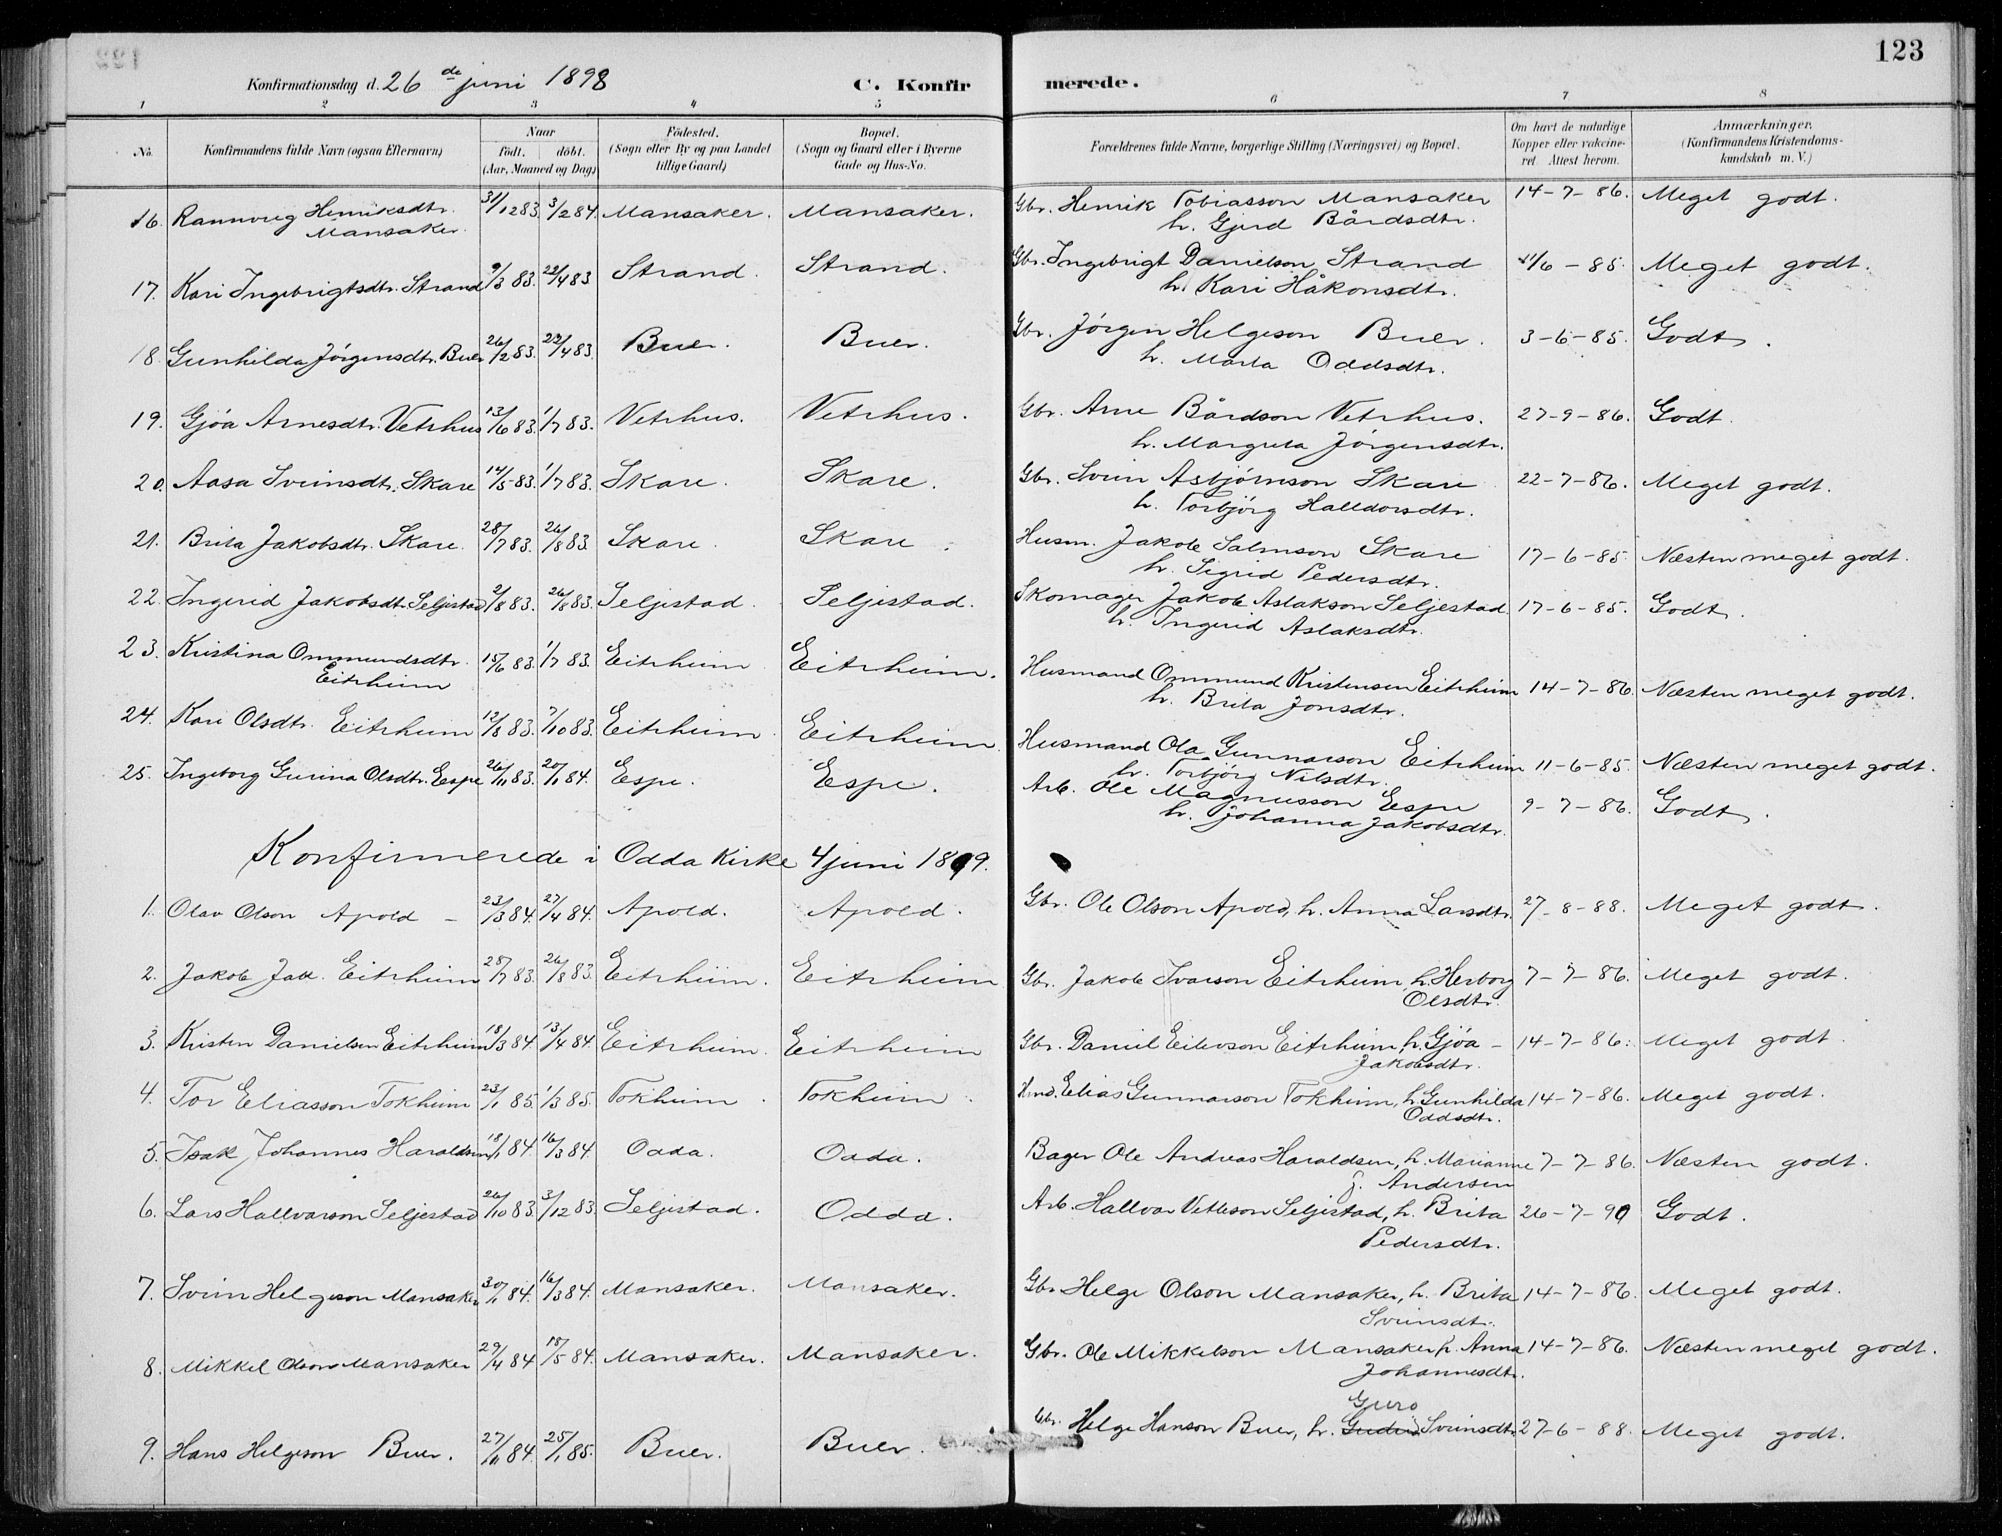 123
Konfirmationsdag d. 26de juni 1898
C. Konfirmerede.
1 2 3 4 5 6 7 8
No. Konfirmandens fulde Navn (ogsaa Efternavn) Naar født. døbt. (Aar, Maaned og Dag) Fødested. (Sogn eller By og paa Landet tillige Gaard) Bopæl. (Sogn og Gaard eller i Byerne Gade og Hus-No. Forældrenes fulde Navne, borgerlige Stilling (Næringsvei) og Bopæl. Om havt de naturlige Kopper eller vakcineret. Attest herom. Anmærkninger. (Konfirmandens Kristendomskundskab m. V.)
16. Rannveig Henriksdtr. Mansaker 31/12 83. 3/2 84. Mansaker. Mansaker. Gbr. Henrik Tobiasson Mansaker h. Gjerd Bårdsdtr. 14-7-86. Meget godt.
17. Kari Ingebrigtsdtr. Strand 9/3 83. 22/4 83 Strand. Strand. Gbr. Ingebrigt Danielson Strand h. Kari Håkonsdtr. 11/6-85. Meget godt.
18. Gunhilda Jörgensdtr. Buer 26/2 83. 22/4 83. Buer. Buer. Gbr. Jörgen Helgeson Buer. h. Marta Oddsdtr. 3-6-85. Godt.
19. Gjöa Arnesdtr. Vetrhus 13/6 83. 1/7 83. Vetrhus. Vetrhus. Gbr. Arne Bårdson Vetrhus. h. Margreta Jörgensdtr. 27-9-86. Godt.
20. Aasa Sveinsdtr. Skare 14/5 83. 1/7 83. Skare. Skare. Gbr. Svein Asbjørnson Skare h. Torbjörg Halldorsdtr. 22-7-86. Meget godt.
21. Brita Jakobsdtr. Skare. 28/7 83. 26/8 83. Skare. Skare. Husm. Jakob Salmson Skare h. Sigrid Pedersdtr. 17-6-85. Næsten meget godt.
22. Ingerid Jakobsdtr. Seljestad 2/8 83. 26/8 83. Seljestad. Seljestad. Skomager Jakob Aslakson Seljestad h. Ingerid Aslaksdtr. 17-6-85. Godt.
23. Kristina Ommundsdtr. Eitrheim 15/6 83. 1/7 83. Eitrheim Eitrheim. Husmand Ommund Kristensen Eitrheim h. Brita Jonsdtr. 14-7-86. Næsten meget godt.
24. Kari Olsdtr. Eitrheim 12/8 83. 7/10 83. Eitrheim. Eitrheim. Husmand Ola Gunnarson Eitrheim h. Torbjörg Nilsdtr. 11-6-85. Næsten meget godt.
25. Ingeborg Gurina Olsdtr. Espe 26/11 83. 20/1 84. Espe. Espe. Arb. Ole Magnusson Espe h. Johanna Jakobsdtr. 9-7-86. Godt.
Konfirmerede i Odda Kirke 4 juni 1899.
1. Olav Olson Apold 23/3 84. 27/4 84. Apold. Apold. Gbr. Ole Olson Apold, h. Anna Larsdtr. 27/-8-88. Meget godt.
2. Jakob Jak. Eitrheim 28/7 83. 26/8 83. Eitrheim. Eitrheim Gbr. Jakob Ivarson Eitrheim, h. Herborg Olsdtr. 7-7-86. Meget godt.
3. Kristen Danielsen Eitrheim 18/3 84. 13/4 84. Eitrheim. Eitrheim Gbr. Daniel Eilevson Eitrheim, h. Gjöa Jakobsdtr. 14-7-86. Meget godt.
4. Tor Eliasson Tokheim 23/1 85. 1/3 85. Tokheim. Tokheim. Hmd. Elias Gunnarson Tokheim, h. Gunhilda Oddsdtr. 14-7-86. Meget godt.
5. Isak Johannes Haraldsen 18/1 84. 16/3 84. Odda. Odda. Bager Ole Andreas Haraldsen, h. Marianne f. Andersen 7-7-86. Næsten godt.
6. Lars Hallvarson Seljestad 26/10 83. 3/12 83. Seljestad. Odda. Arb. Hallvar Vetleson Seljestad, h. Brita Pedersdtr. 26-7-90 Godt.
7. Svein Helgeson Mansaker 30/1 84. 16/3 84. Mansaker. Mansaker. Gbr Helge Olson Mansaker, h. Brita Sveinsdtr. 14-7-86. Meget godt.
8. Mikkel Olson Mansaker 29/4 84. 18/5 84. Mansaker. Mansaker. Gbr. Ole Mikkelson Mansaker h. Anna Johannesdtr. 14-7-86. Næsten meget godt.
9. Hans Helgeson Buer. 27/11 84. 25/1 85. Buer. Buer. Gbr. Helge Hanson Buer, h. Guro Sveinsdtr. 27-6-88. Meget godt.